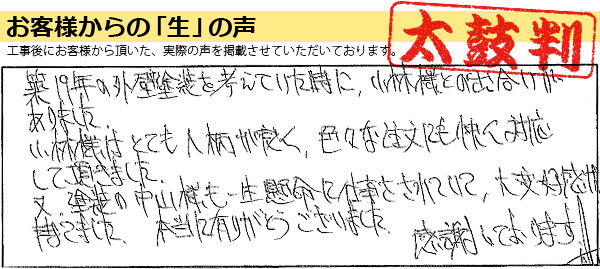 お客様からの「生」の声
工事後にお客様から頂いた、実際の声を掲載させていただいております。
太鼓判
築19年の外壁塗装を考えていた時に、小林様との出会いが
ありました。
小林様はとても人柄が良く、色々な注文にも快く対応
して頂きました。
又、塗装の中山様も一生懸命に仕事をされていて、大変好感が
持てました。本当に有りがとうございました。
感謝しております!!